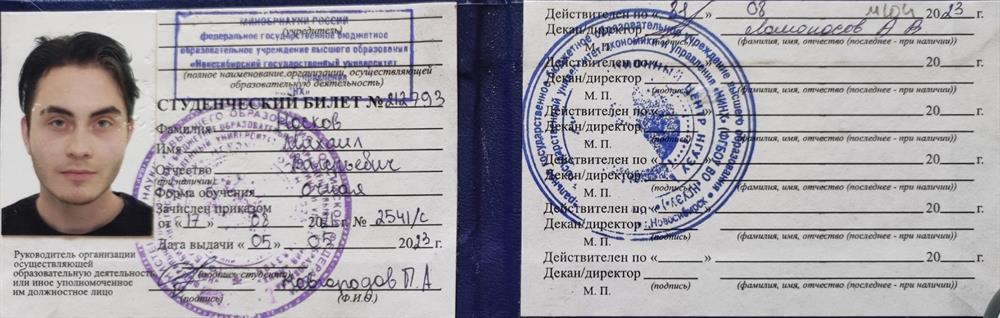 МИНОБРНАУКИ РОССИИ
(учредитель)
федеральное государственное бюджетное
образовательное учреждение высшего образования
«Новосибирский государственный университет
(полное наименование организации, осуществляющей
управления
образовательную деятельность)
«НИНХ»
СТУДЕНЧЕСКИЙ БИЛЕТ № 212793
Фамилия Носков
Имя Михаил
Отчество Валерьевич
(при наличии)
Форма обучения очная
Зачислен приказом
от «17» 08 20 г. № 2541/с
Дата выдачи «05» 05 2023
Руководитель организации
осуществляющей
образовательную деятельность
или иное уполномоченное
им должностное лицо
(подпись студента)
Новгородов П. А
(подпись) (Ф.И.О.)
Действителен по «31» 08 2023
Декан/директор Ломоносов А В
М. П. (подпись) (фамилия, имя, отчество (последнее - при наличии))
Действителен по « » 20
Декан/директор
М. П. (подпись) (фамилия, имя, отчество (последнее - при наличии))
Действителен по « » 20
Декан/директор
М. П. (подпись) (фамилия, имя, отчество (последнее - при наличии))
Действителен по « » 20
Декан/директор
М. П. (подпись) (фамилия, имя, отчество (последнее - при наличии))
Действителен по « » 20
Декан/директор
М. П. (подпись) (фамилия, имя, отчество (последнее - при наличии))
Действителен по « » 20
Декан/директор
М. П. (подпись) (фамилия, имя, отчество (последнее - при наличии))